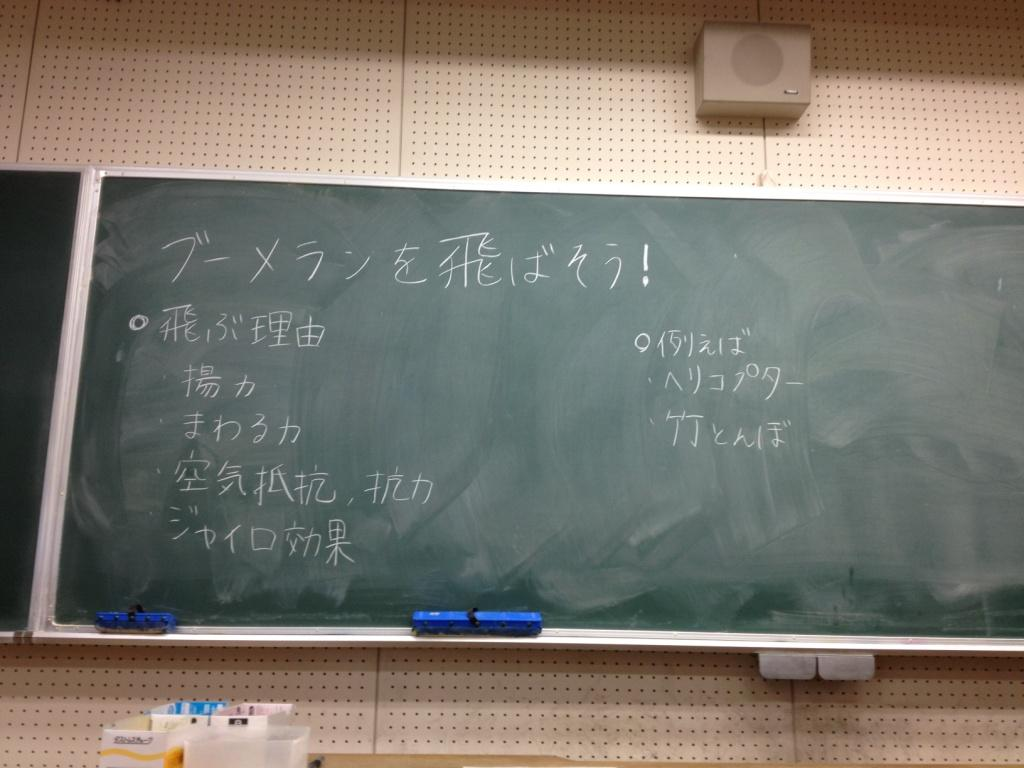 ブーメランを飛ばそう!
◎飛ぶ理由
・揚力
・まわる力
・空気抵抗,抗力
・ジャイロ効果
○例えば
・ヘリコプター
・竹とんぼ